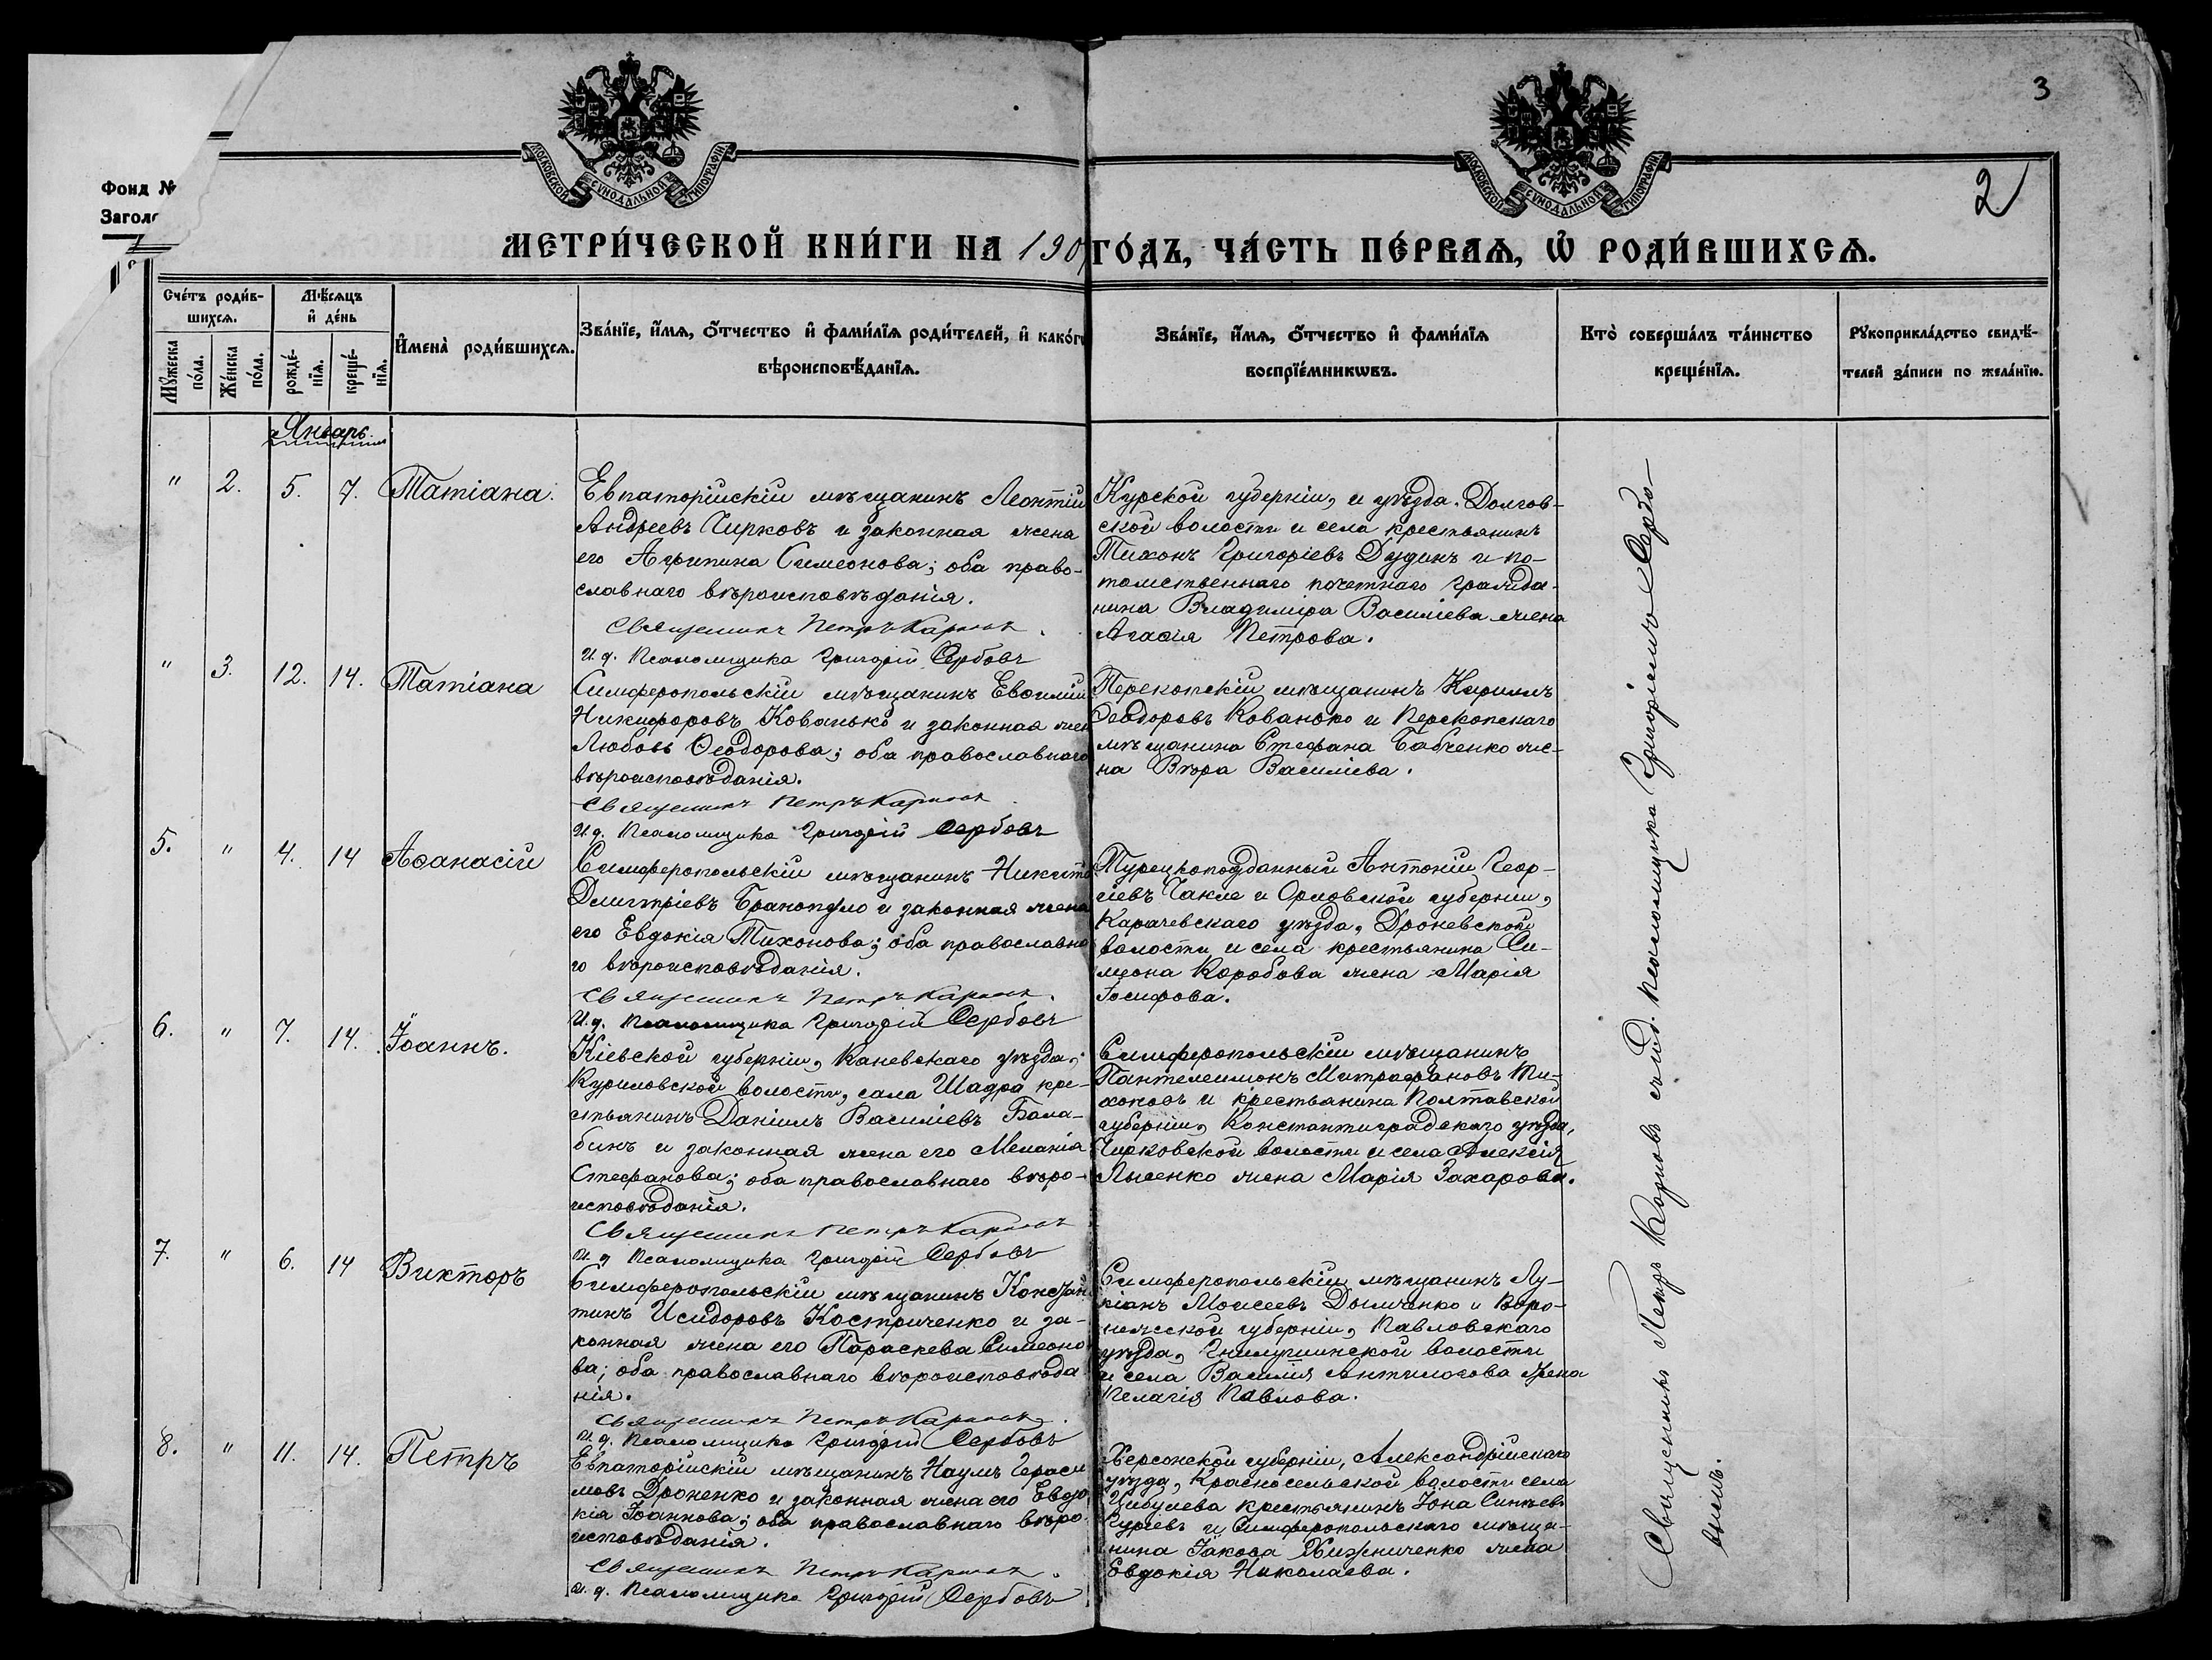 3
2
Фонд №
МОСКОВСКОЙ СѴНОДАЛЬНОЙ ТИПОГРАФІИ
МОСКОВСКОЙ СѴНОДАЛЬНОЙ ТИПОГРАФІИ
МЕТРИ́ЧЕСКОЙ КНИ́ГИ НА 190 ГО́ДЪ, ЧА́СТЬ ПЕ́РВАѦ, Ѡ҆ РОДИ́ВШИХСѦ.
Счéтъ роди́в-
шихсѧ.
Мꙋ́жеска
по́ла.
Же́нска
по́ла.
Мѣ́сѧцъ
и҆ де́нь
рожде́-
нїѧ.
креще́-
нїѧ.
И҆мена̀ роди́вшихсѧ.
Зва́нїе, и҆́мѧ, ѻ҆́тчество и҆ фами́лїѧ роди́телей, и҆ како́гѡ
вѣроисповѣ́данїѧ.
Зва́нїе, и҆́мѧ, ѻ҆́тчество и҆ фами́лїѧ
воспрїе́мникѡвъ.
Кто̀ соверша́лъ та́инство
креще́нїѧ.
Рꙋкоприкла́дство свидѣ́-
телей за́писи по жела́нїю.
Январь.
" 2. 5. 7. Татіана.
Евпаторійскій мѣщанинъ Леонтій
Андреевъ Чирковъ и законная жена
его Агрипина Симеонова; оба право-
славнаго вѣроисповѣданія.
Священникъ Петръ Карпов
И. д. Псаломщика Григорій Сербовъ
Курской губерніи, и уѣзда. Долгов-
ской волости и села крестьянинъ
Тихонъ Григоріевъ Дудинъ и по-
томственнаго почетнаго гражда-
нина Владиміра Василіева жена
Агафія Петрова.
" 3. 12. 14. Татіана
Симферопольскій мѣщанинъ Евфимій
Никифоровъ Кованько и законная жен
Любовь Ѳеодорова; оба православнаго
вѣроисповѣданія.
Священникъ Петръ Карпов
И. д. Псаломщика Григорій Сербовъ
Перекопскій мѣщанинъ Кириллъ
Ѳеодоровъ Кованько и Перекопскаго
мѣщанина Стефана Бабченко же-
на Вѣра Василіева.
5. " 4. 14 Аѳанасій
Симферопольскій мѣщанинъ Никита
Димитріевъ Бранопуло и законная жена
его Евдокія Тихонова; оба православна
го вѣроисповѣданія.
Священникъ Петръ Карпов.
И. д. Псаломщика Григорій Сербовъ
Турецкоподданный Антоній Геор-
гіевъ Чакле и Орловской губерніи,
Карачевскаго уѣзда, Дроневской
волости и села крестьянина Си-
меона Коробова жена Марія
Іосифова.
6. " 7. 14. Іоаннъ.
Кіевской губерніи, Каневскаго уѣзда,
Куриловской волости, села Шадра кре-
стьянинъ Даніилъ Василіевъ Бала-
бинъ и законная жена его Меланія
Стефанова; оба православнаго вѣро-
исповѣданія.
Священникъ Петръ Карпов
И. д Псаломщика Григорій Сербовъ
Симферопольскій мѣщанинъ
Пантелеимонъ Митрофановъ Ти-
хоновъ и крестьянина Полтавской
губерніи, Константиноградскаго уѣзда,
волости и села Алексія
Лысенко жена Марія Захарова.
7. " 6. 14 Викторъ
Симферопольскій мѣщанинъ Констан
тинъ Исидоровъ Костриченко и за-
конная жена его Параскева Симеоно
ва; оба православнаго вѣроисповѣда
нія.
Священникъ Петръ Карпов.
И. д. Псаломщика Григорій Сербовъ
Симферопольскій мѣщанинъ Лу-
кіанъ Моисеевъ Дымченко и Воро-
нежской губерніи, Павловскаго
уѣзда, волости
и села Василія Антилогова жена
Пелагія Павлова.
8. " 11. 14. Петръ
Евпаторійскій мѣщанинъ Наумъ Гераси
мовъ Дроненко и законная жена его Евдо
кія Іоаннова; оба православнаго вѣро-
исповѣданія.
Священникъ Петръ Карпов.
И. д. Псаломщика Григорій Сербовъ
Херсонской губерніи, Александрійскаго
уѣзда, Красносельской волости села
Цибулева крестьянинъ Іона
и Симферопольскаго мѣща-
нина Іакова Хижниченко жена
Евдокія Николаева.
Священникъ Петръ Карповъ съ и.д. псаломщика Григоріемъ Сербо-
вымъ.